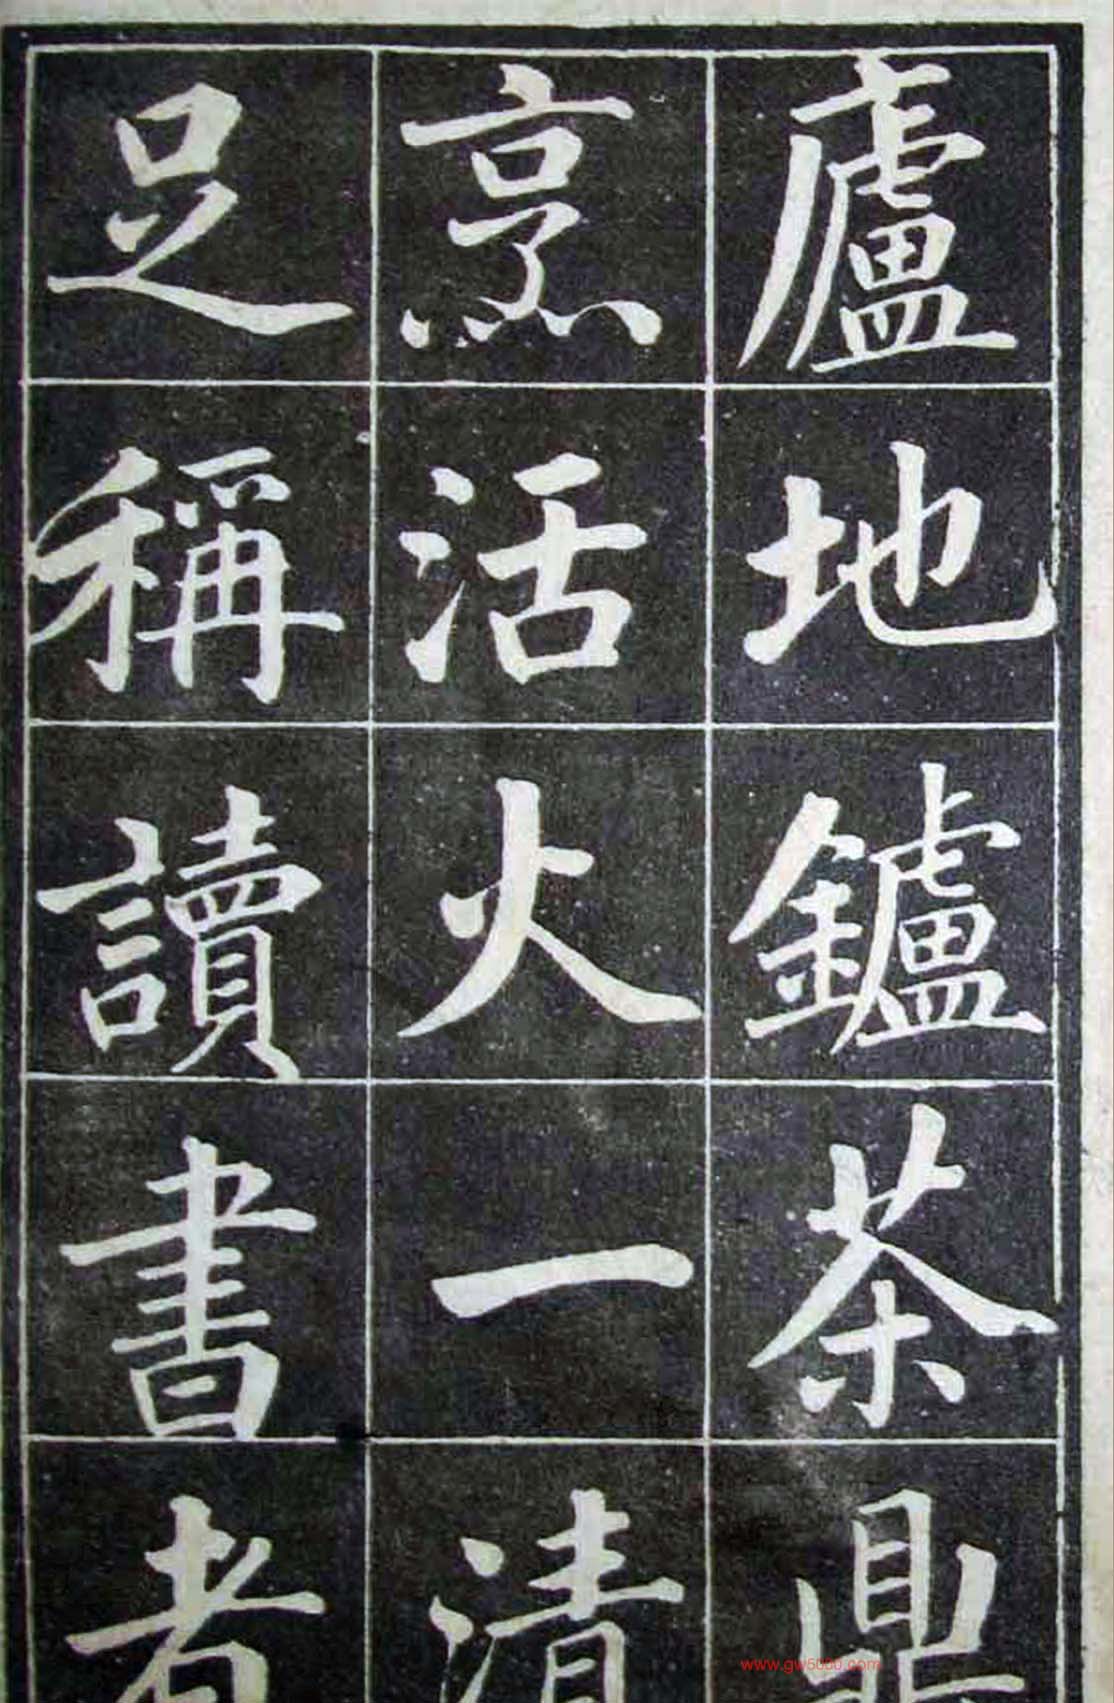 廬地鑪茶鼎
烹活火一清
足稱讀書者
www.gw5000.com